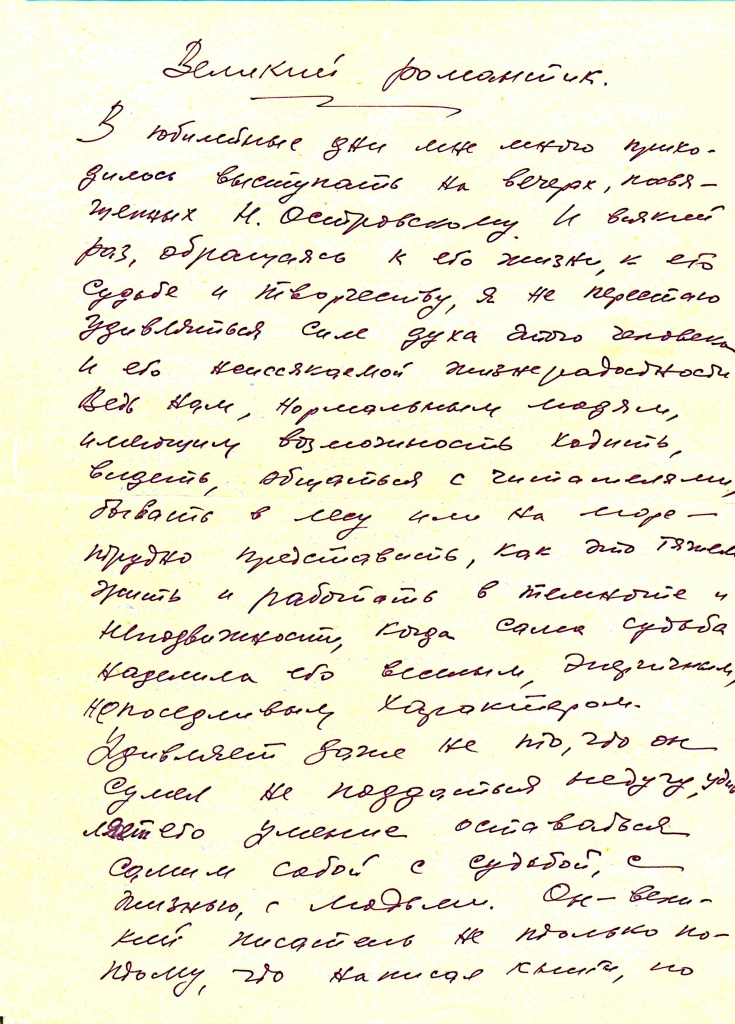 Великий романтик.
В юбилейные дни мне много прихо-
дилось выступать на вечерах, посвя-
щенных Н. Островскому. И всякий
раз, обращаясь к его жизни, к его
судьбе и творчеству, я не перестаю
удивляться силе духа этого человека
и его неиссякаемой жизнерадостности
Ведь нам, нормальным людям,
имеющим возможность ходить,
видеть, общаться с читателями,
бывать в лесу или на море —
трудно представить, как это тяжело
жить и работать в темноте и
неподвижности, когда сама судьба
наделила его веселым, энергичным,
непоседливым характером.
Удивляет даже не то, что он
сумел не поддаться недугу, удив
ляет его умение оставаться
самим собой с судьбой, с
жизнью, с людьми. Он — вели-
кий писатель не только по-
тому, что написал книги, но